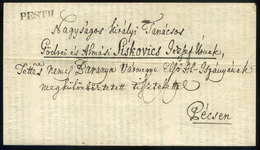 PESTH
Nagyságos Királyi Tanácsos
Gödrei és Almási Siskovics József Úrnak,
Tettes Nemes Baranya Vármegye Első Al-Ispányának
megkülönböztetett tisztelettel
Pécsen